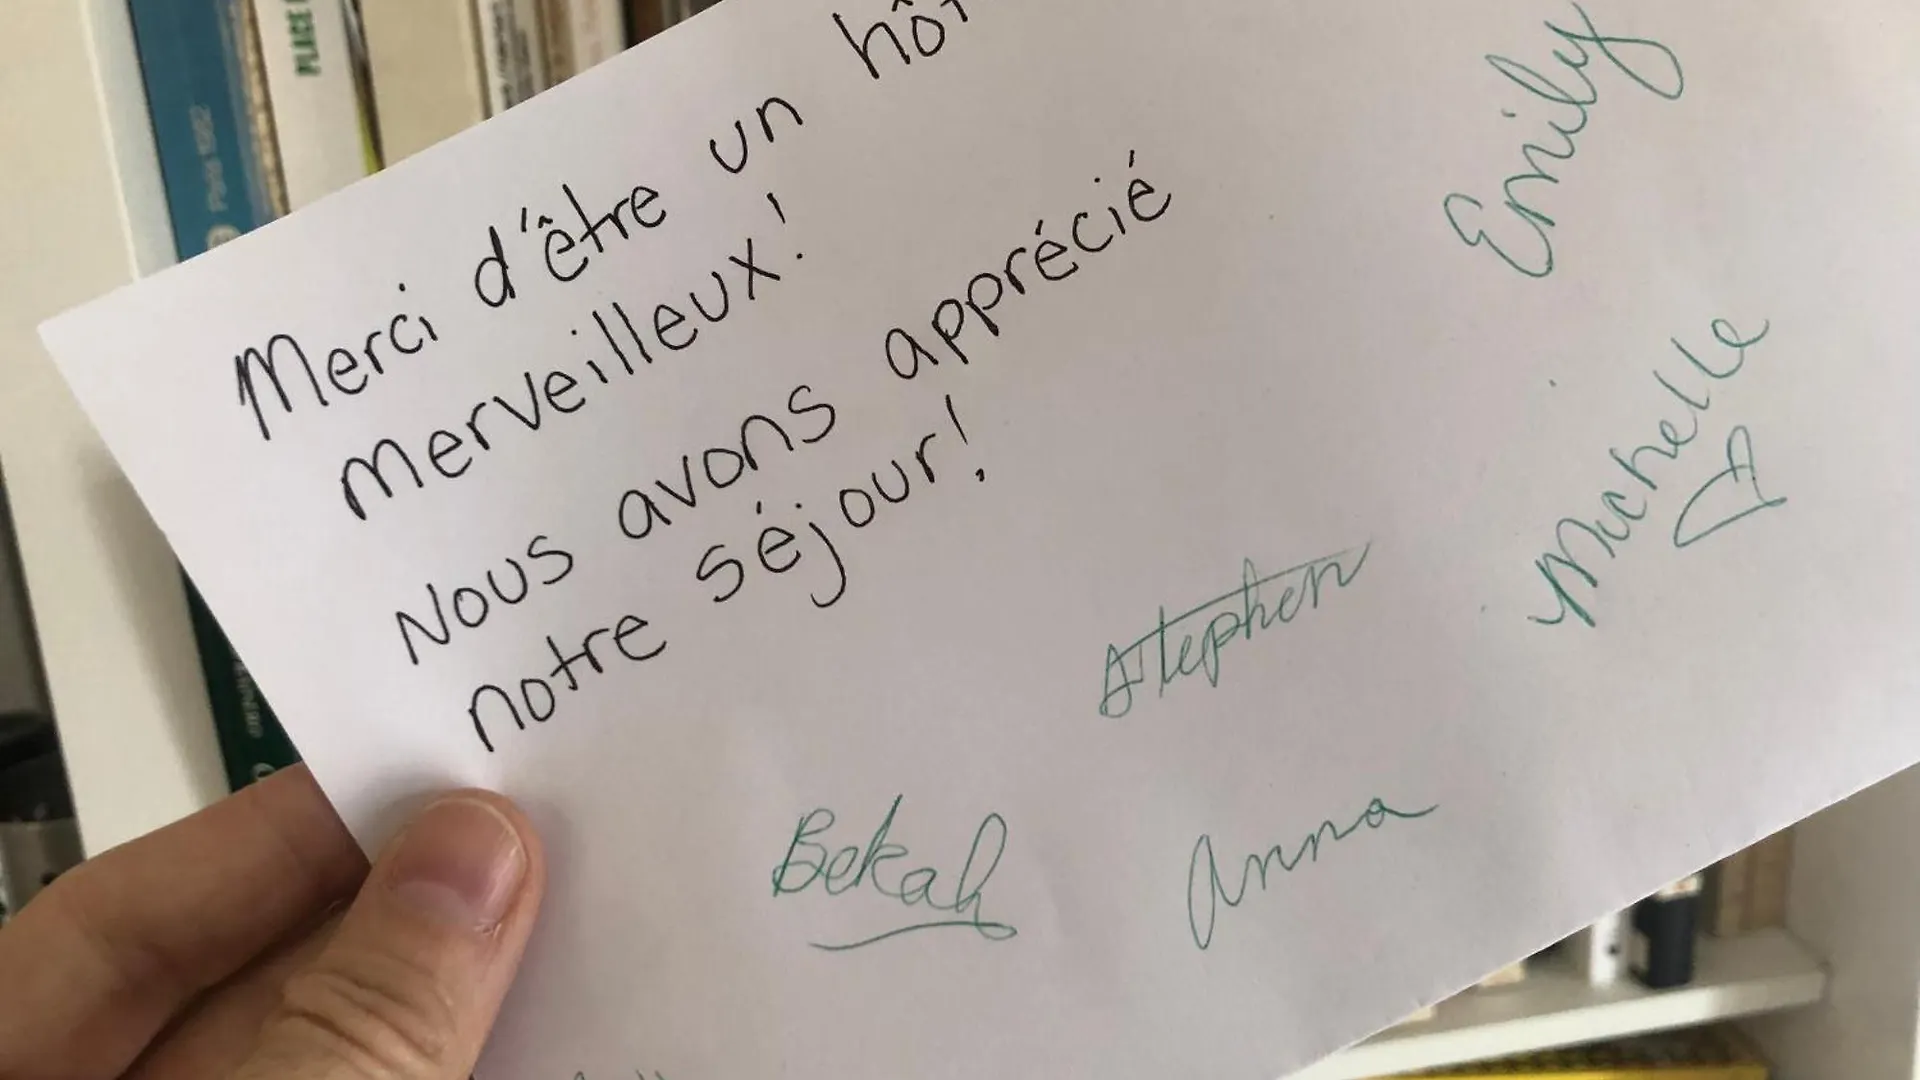 Merci d'être un
merveilleux!
Nous avons apprécié
notre séjour!
Emily
Michelle
Stephen
Bekah
Anna
PLACE